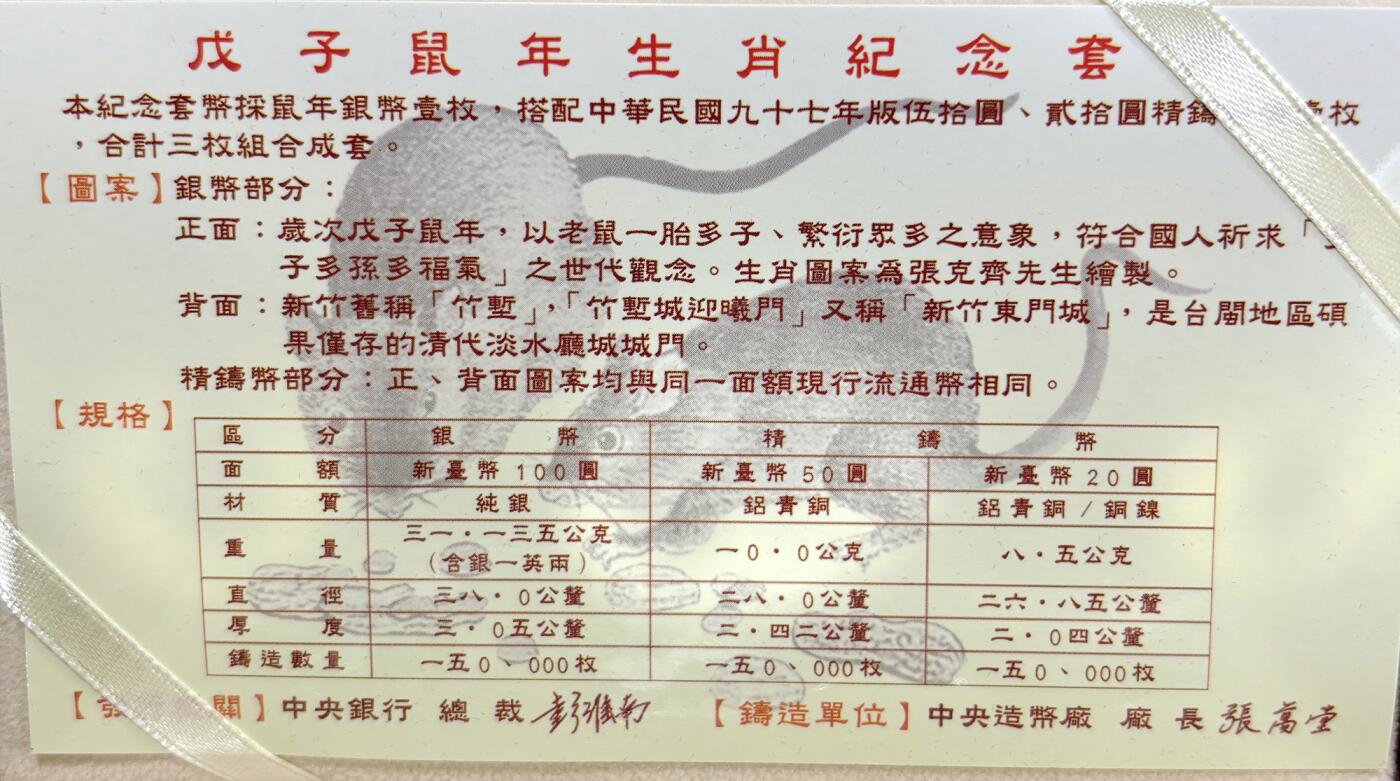 戊子鼠年生肖紀念套
本紀念套幣採鼠年銀幣壹枚，搭配中華民國九十七年版伍拾圓、貳拾圓精鑄 枚
，合計三枚組合成套。
【圖案】銀幣部分：
正面：歲次戊子鼠年，以老鼠一胎多子、繁衍眾多之意象，符合國人祈求「
子多孫多福氣」之世代觀念。生肖圖案為張克齊先生繪製。
背面：新竹舊稱「竹塹」，「竹塹城迎曦門」又稱「新竹東門城」，是台閩地區碩
果僅存的清代淡水廳城城門。
精鑄幣部分：正、背面圖案均與同一面額現行流通幣相同。
【規格】
區分 銀幣 精鑄幣
面額 新臺幣100圓 新臺幣50圓 新臺幣20圓
材質 純銀 鋁青銅 鋁青銅/銅鎳
重量 三一・一三五公克 一0・0公克 八・五公克
（含銀一英兩）
直徑 三八・0公釐 二八・0公釐 二六・八五公釐
厚度 三・0五公釐 二・四二公釐 二・0四公釐
鑄造數量 一五0、000枚 一五0、000枚 一五0、000枚
【發 關】中央銀行 總裁 彭淮南 【鑄造單位】中央造幣廠 廠長 張萬堂